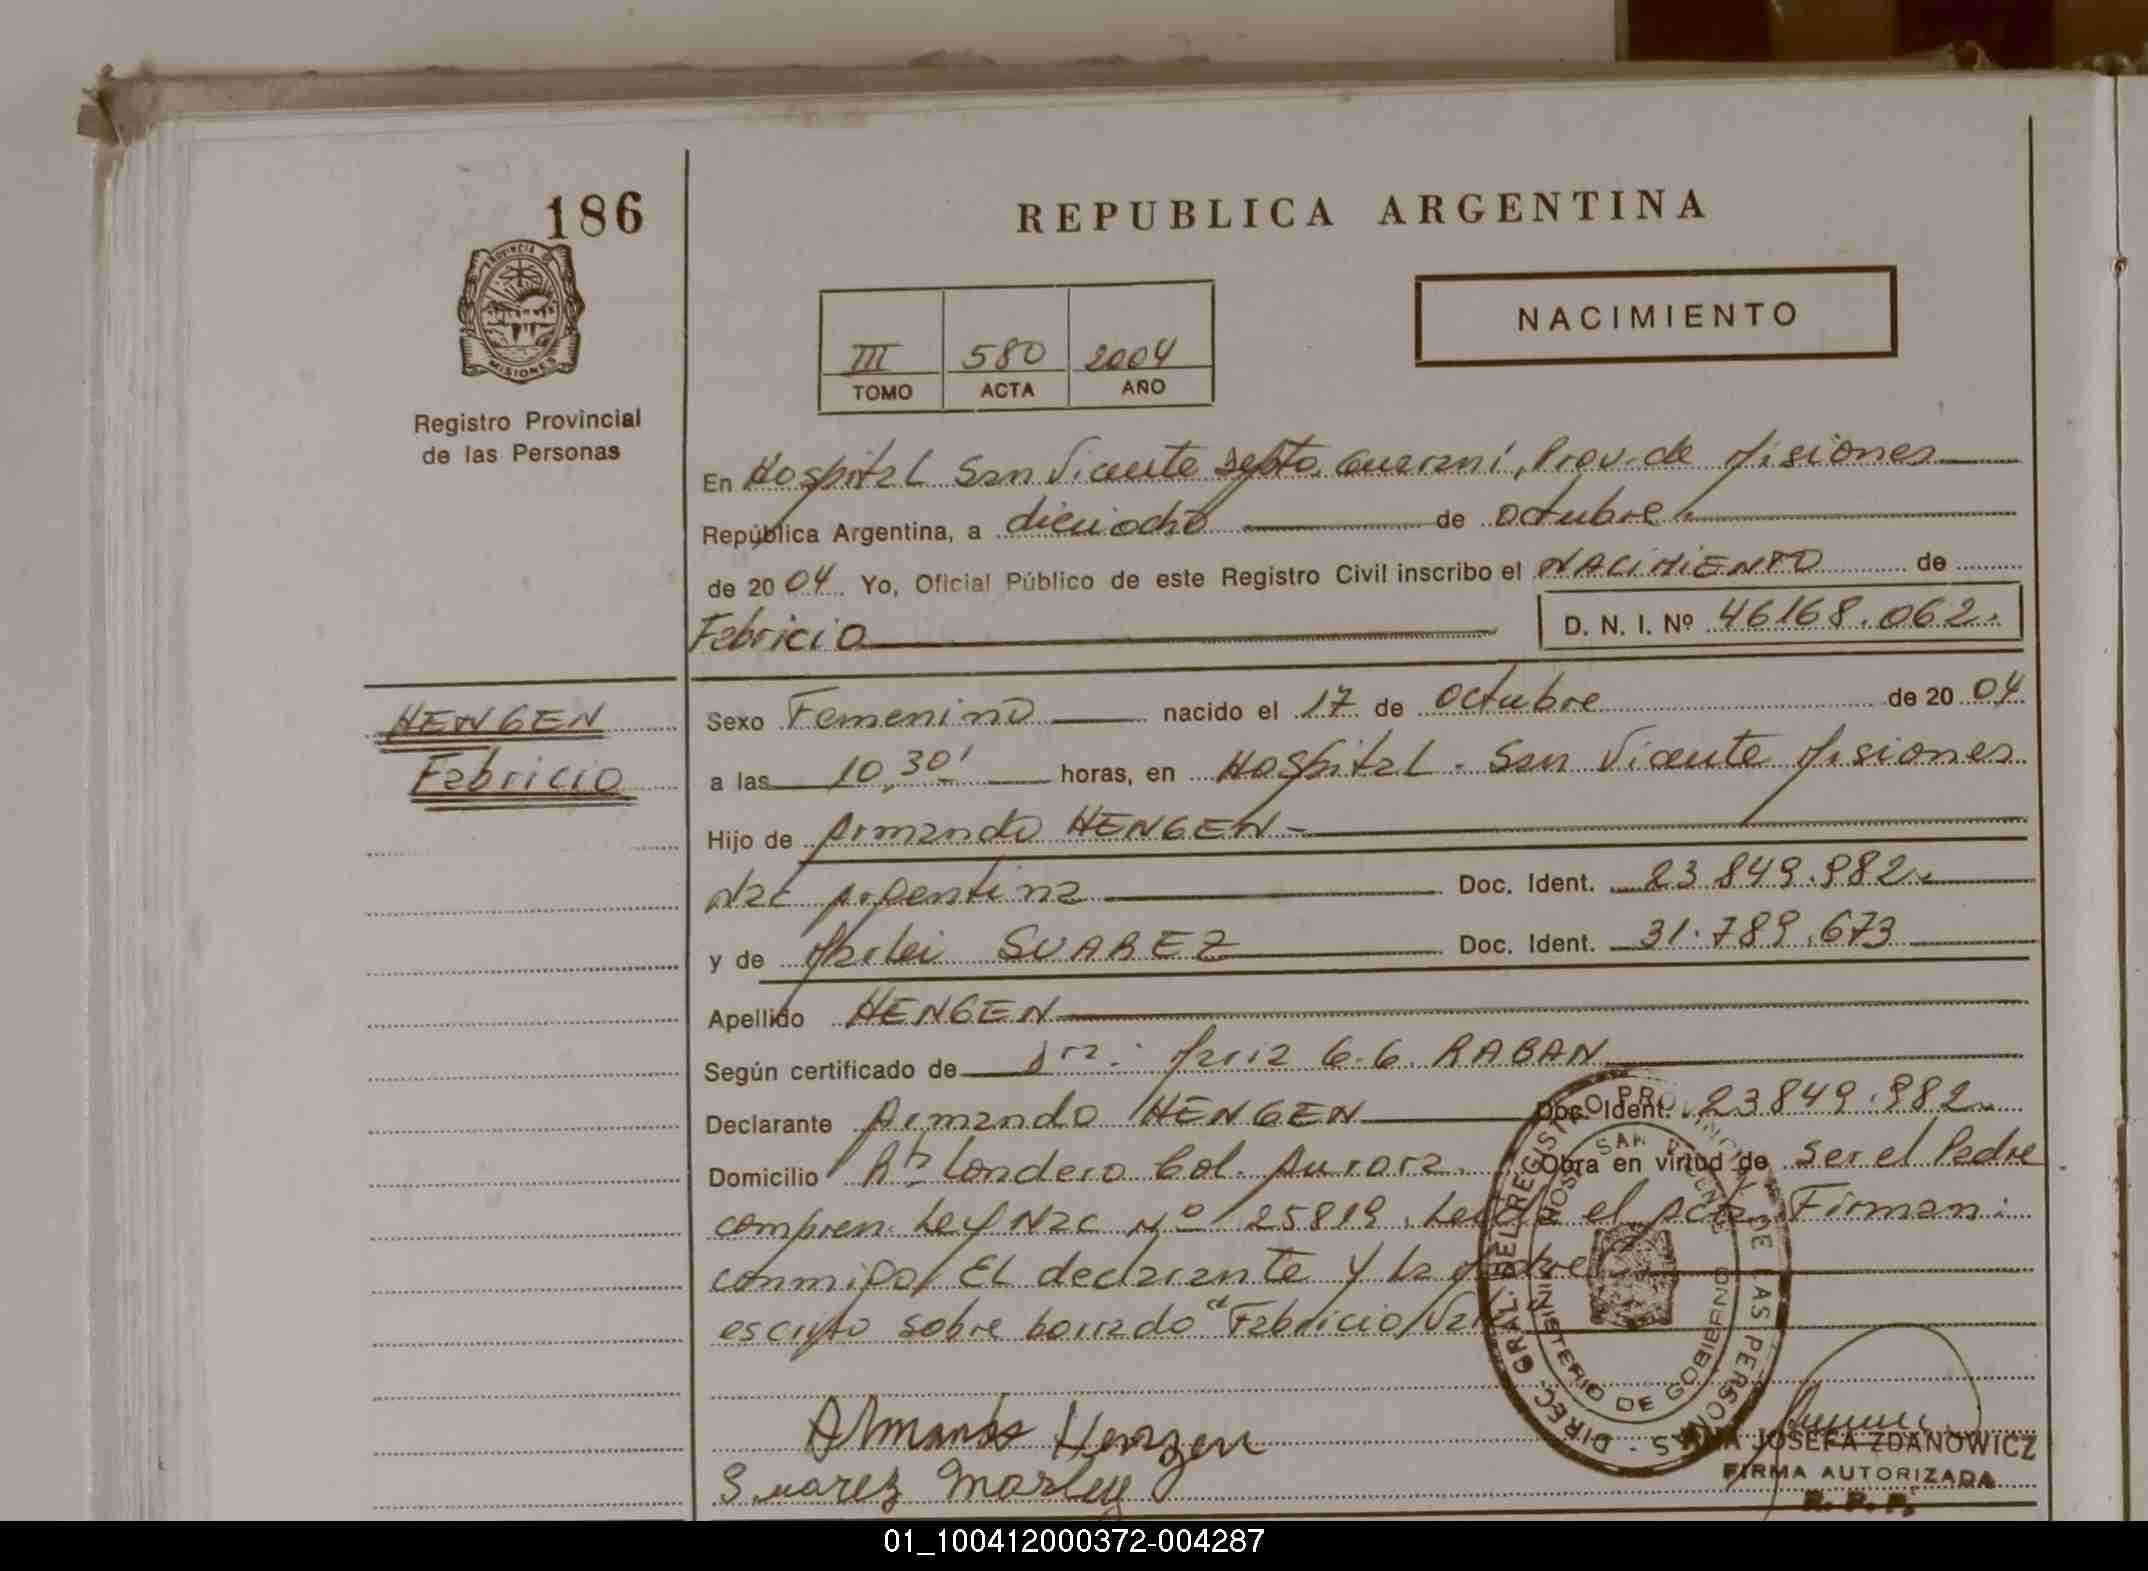 186
PROVINCIA DE
MISIONES
Registro Provincial
de las Personas
REPUBLICA ARGENTINA
III 580 2004
TOMO ACTA AÑO
NACIMIENTO
En Hospital San Vicente Depto. Guarani, Prov. de Misiones
República Argentina, a dieciocho de octubre
de 2004 Yo, Oficial Público de este Registro Civil inscribo el NACIMIENTO de
Fabricio
D. N. I. Nº 46168.062.
HENGEN
Fabricio
Sexo Femenino nacido el 17 de Octubre de 2004
a las 10,30' horas, en Hospital - San Vicente Misiones
Hijo de Armando HENGEN -
Nac Argentina Doc. Ident. 23849.982.
y de Marlei SUAREZ Doc. Ident. 31.789.673
Apellido HENGEN
Según certificado de Dra. Maria G. G. RABAN
Declarante Armando HENGEN Doc. Ident. 23849.982.
Domicilio Londero Col. Aurora. Obra en virtud de ser el Padre
compren. Ley Nac Nº 25819. Leida el acta Firman:
conmigo El declarante y la Madre
escrito sobre borrado "Fabricio
DIREC. GRAL. DEL REGISTRO PROVINCIAL DE LAS PERSONAS -
MINISTERIO DE GOBIERNO
HOSP. SAN VICENTE
Armando Hengen
Suarez Marley
ANA JOSEFA ZDANOWICZ
FIRMA AUTORIZADA
R. P. P.
01_100412000372-004287